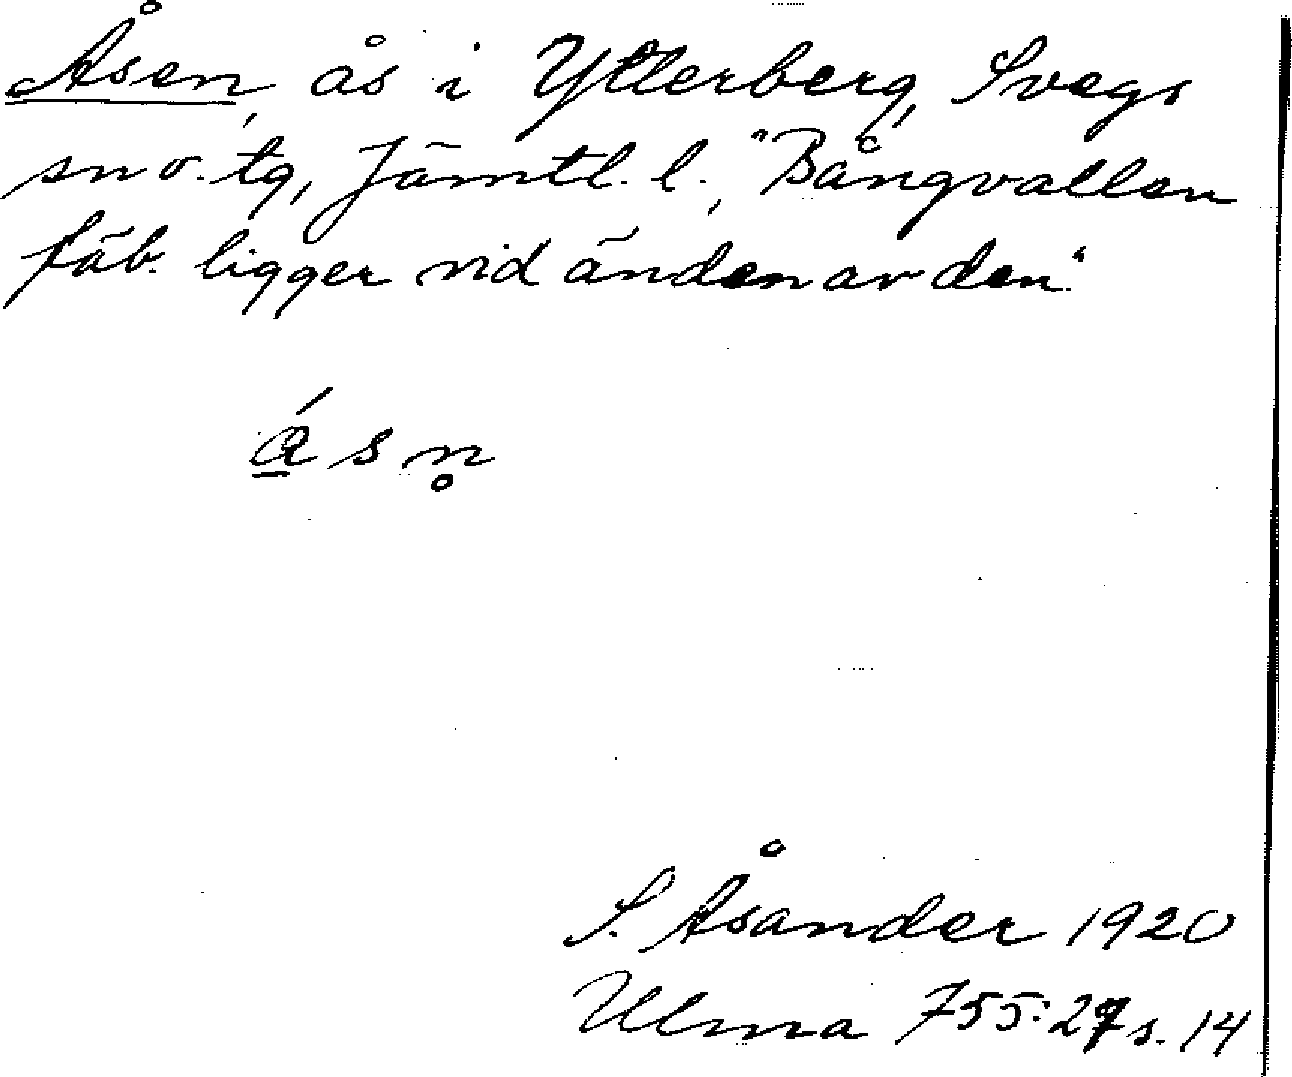 Åsen, ås i Ytterberg, Svegs
sn o. tg, Jämtl. l., "Bångvallen
fäb. ligger vid änden av den."
ǻ s n̥
S. Åsander 1920
Ulma 755:27 s. 14